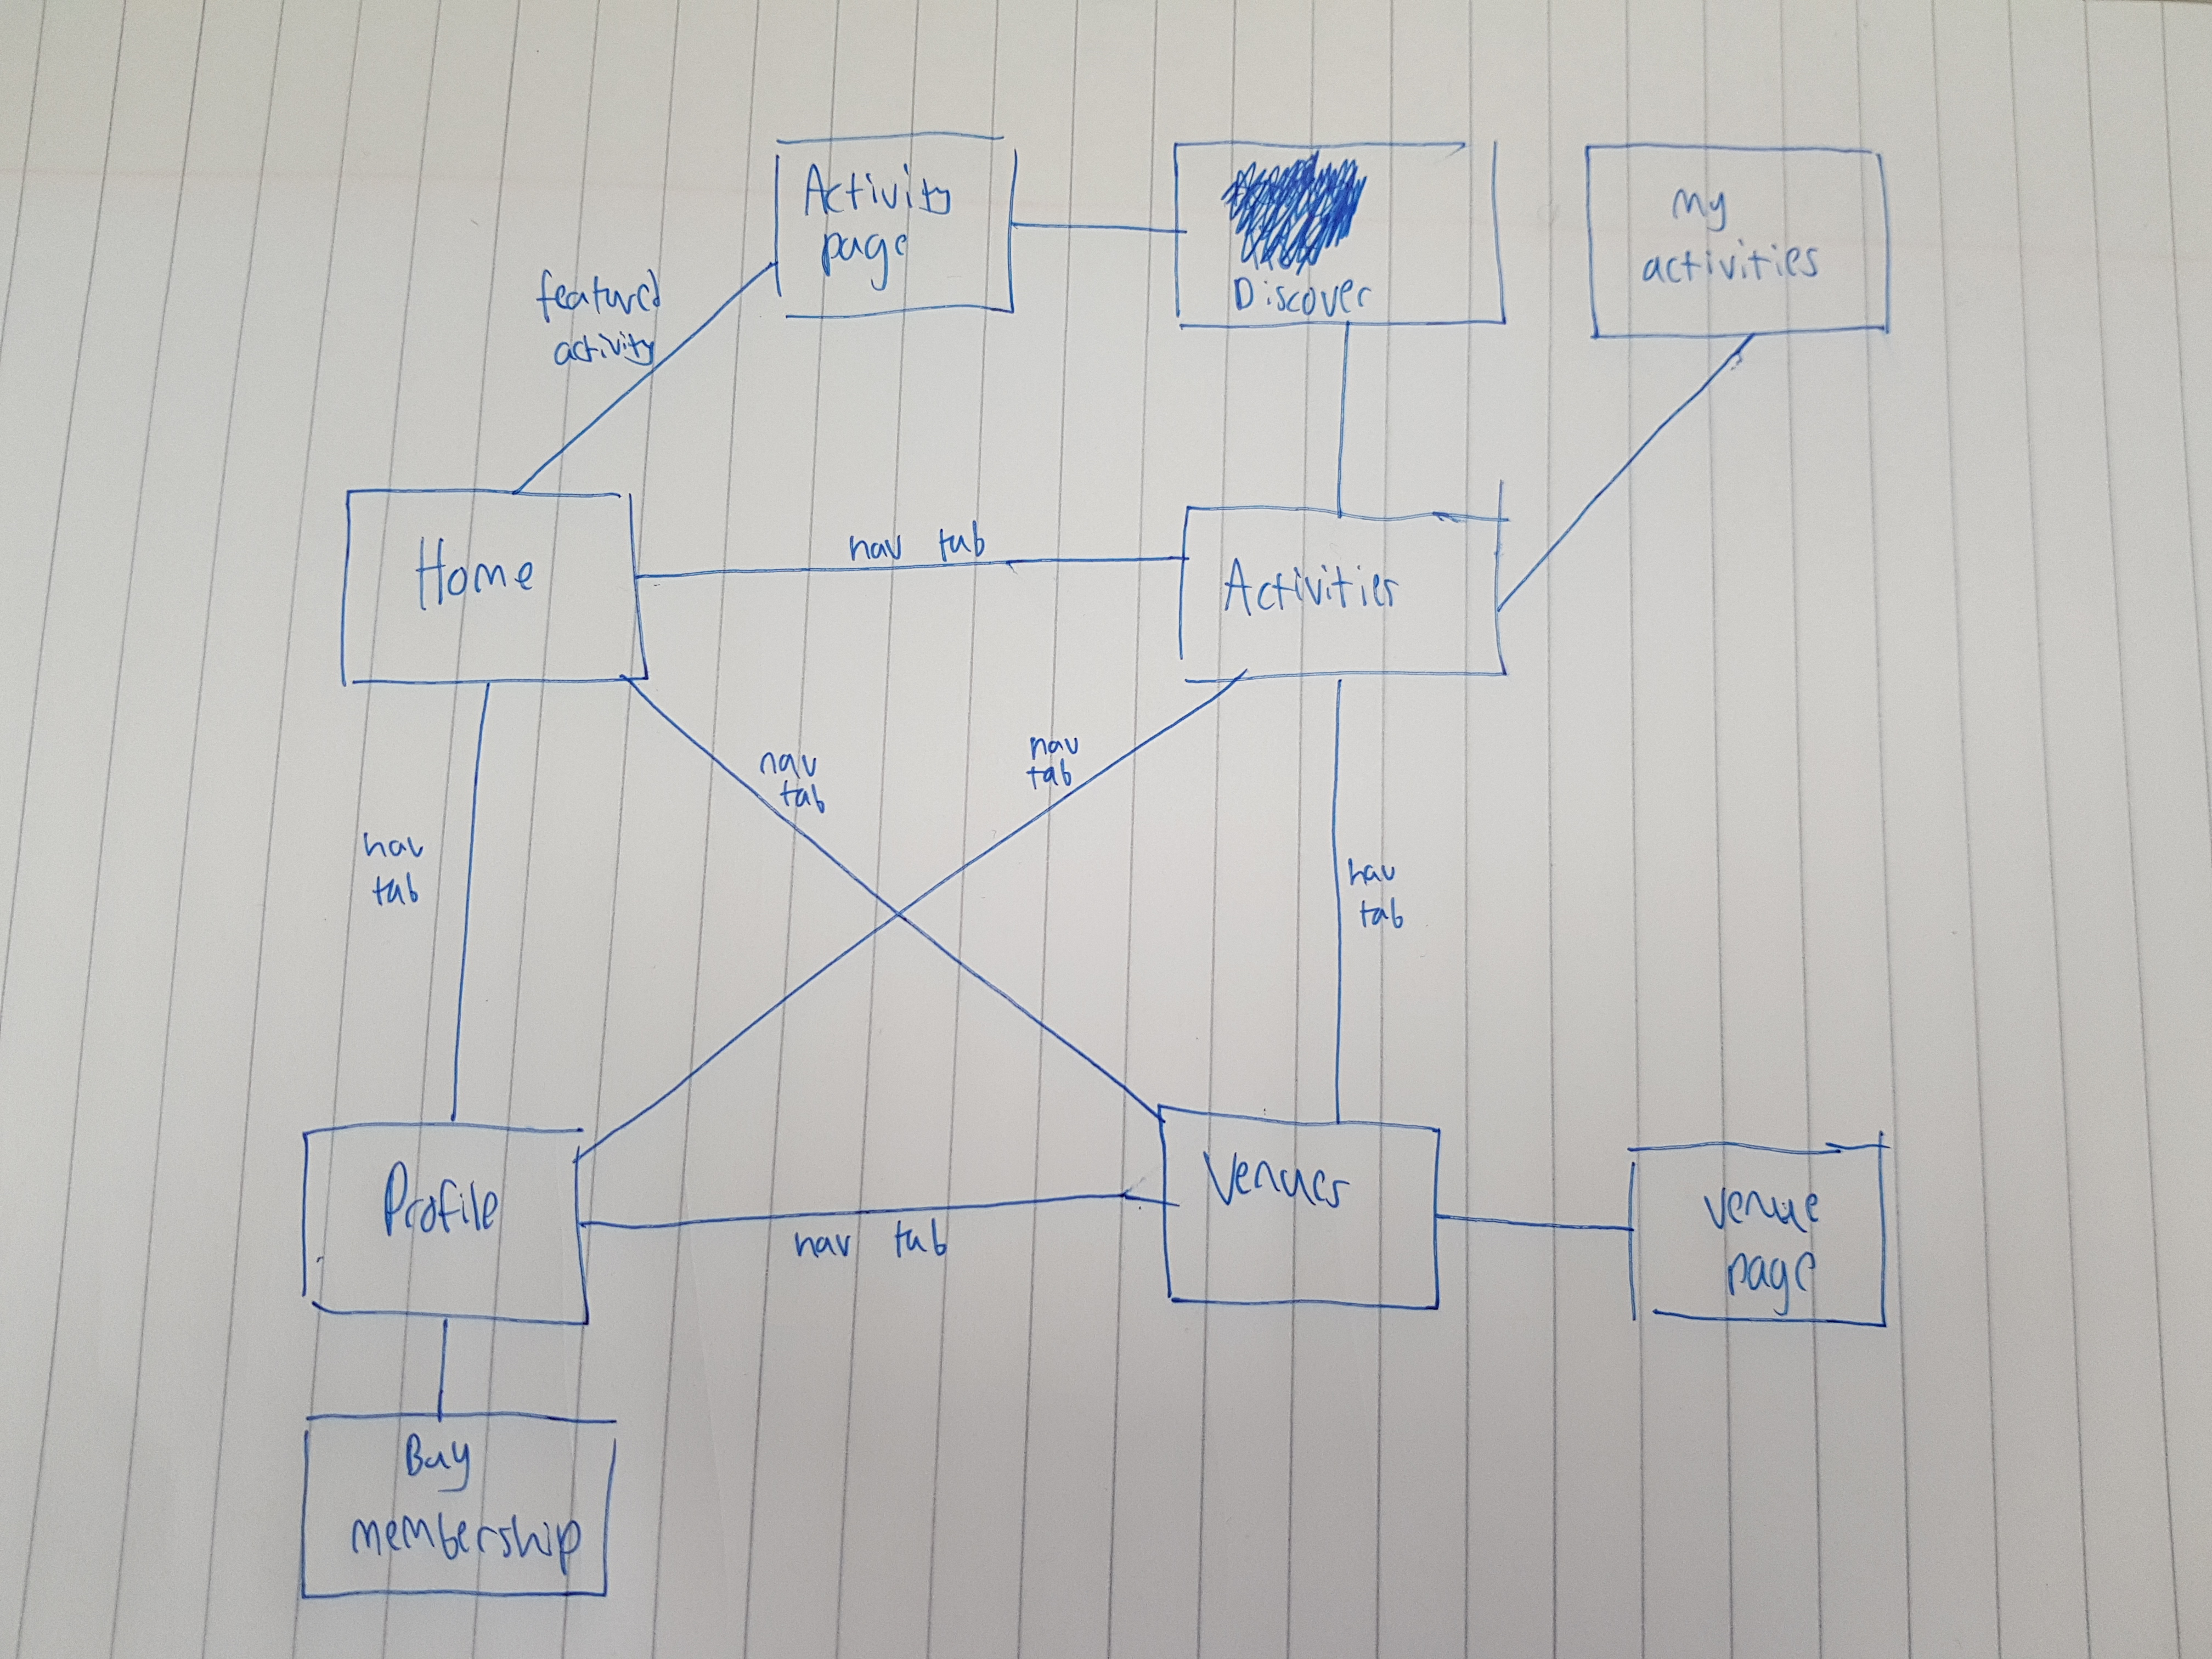 Activity
page
Discover
my
activities
featured
activity
Home
nav tab
Activities
nav
tab
nav
tab
nav
tab
nav
tab
Profile
nav tab
Venues
venue
page
Buy
membership